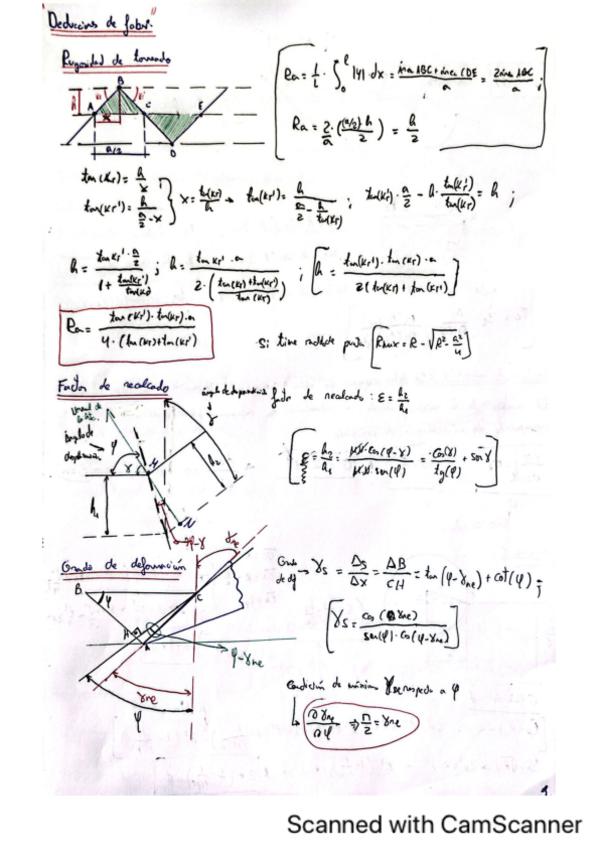 "Deducciones de fabri"
Rugosidad de torneado
Ra = 1/l · ∫₀ˡ |y|·dx = (área ABC + área CDE)/a = 2 área ABC/a ;
Ra = 2/a · ((a/2)·h/2) = h/2
B
A x C E
D
a/2
tan(κr) = h/x
tan(κr') = h/(a/2 - x) } x = tan(κr)/h → tan(κr') = h/(a/2 - h/tan(κr)) ; tan(κr')·a/2 - h·tan(κr')/tan(κr) = h ;
h = (tan κr'·a/2)/(1 + tan(κr')/tan(κr)) ; h = (tan κr'·a)/(2·((tan(κr)+tan(κr'))/tan(κr))) ; [h = (tan(κr')·tan(κr)·a)/(2(tan(κr)+tan(κr')))]
Ra = (tan(κr')·tan(κr)·a)/(4·(tan(κr)+tan(κr')))
Si tiene radio de punta [Rmax = R - √(R² - a²/4)]
Factor de recalcado
ángulo de desprendimiento
factor de recalcado : ε = h₂/h₁
φ γ M N h₁ h₂ φ-γ
ξ = h₂/h₁ = (MN·cos(φ-γ))/(MN·sen(φ)) = cos(γ)/tg(φ) + sen γ
Grado de deformación
γne
B φ C
H A φ-γne
γne
φ
Grado de df → γs = Δs/Δx = ΔB/CH = tan(φ-γne) + cot(φ) ;
[γs = cos(γne)/(sen(φ)·cos(φ-γne))]
Condición de mínimo γs respecto a φ
∂γne/∂φ ⇒ π/2 = γne
1
Scanned with CamScanner